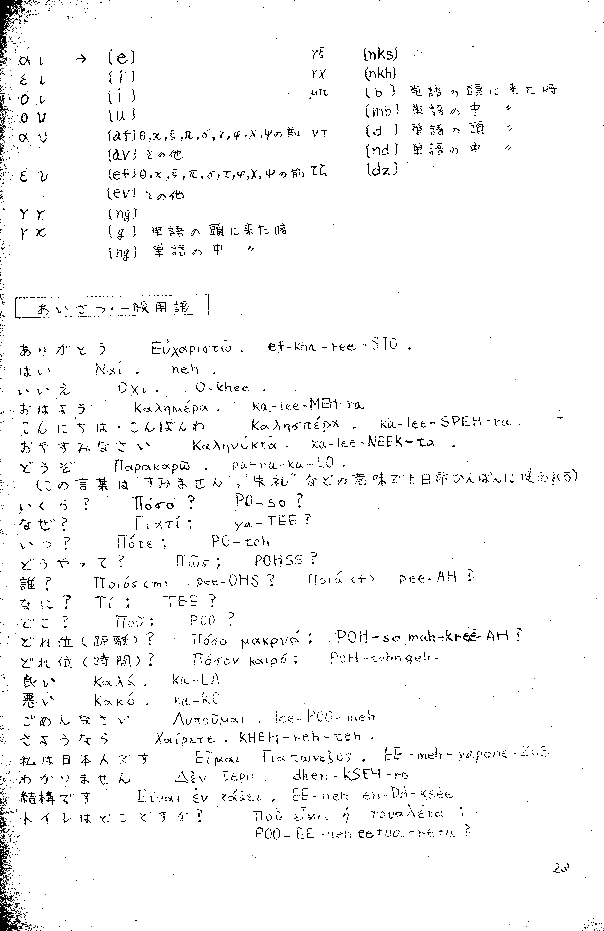 αι → [e] γξ [nks]
ει [i] γχ [nkh]
οι [i] μπ [b] 単語の頭に来た時
ου [u] [mb] 単語の中 〃
αυ [af] θ,κ,ξ,π,σ,τ,φ,χ,ψの前 ντ [d] 単語の頭 〃
[av] その他 [nd] 単語の中 〃
ευ [ef] θ,κ,ξ,π,σ,τ,φ,χ,ψの前 τζ [dz]
[ev] その他
γγ [ng]
γκ [g] 単語の頭に来た時
[ng] 単語の中 〃
あいさつ・一般用語
ありがとう Εὐχαριστῶ. ef-kha-ree-STO.
はい Ναί. neh.
いいえ Ὄχι. O-khee.
おはよう Καλημέρα. ka-lee-MEH-ra
こんにちは・こんばんわ Καλησπέρα. ka-lee-SPEH-ra.
おやすみなさい Καληνύκτα. ka-lee-NEEK-ta.
どうぞ Παρακαρῶ. pa-ra-ka-LO.
(この言葉は"すみません","失礼"などの意味でも日常ひんぱんに使われる)
いくら? Πόσο? PO-so?
なぜ? Γιατί; ya-TEE?
いつ? Πότε; PO-teh
どうやって? Πῶς; POHSS?
誰? Ποιός (m) pee-OHS? Ποιά (f) pee-AH?
なに? Τί; TEE?
どこ? Ποῦ; POO?
どれ位(距離)? Πόσο μακρυά; POH-so mah-kree-AH?
どれ位(時間)? Πόσον καιρό; POH-sohn
良い Καλό. ka-LA
悪い Κακό. ka-KO
ごめんなさい Λυποῦμαι. lee-POO-meh
さようなら Χαίρετε. KHEH-reh-teh.
私は日本人です Εἶμαι EE-meh
わかりません Δέν ξέρω. dhen-KSEH-ro
結構です Εἶναι ἐν τάξει. EE-neh en-DA-ksee
トイレはどこですか? Ποῦ εἶναι ἡ τουαλέτα;
POO-EE-neh ee
28